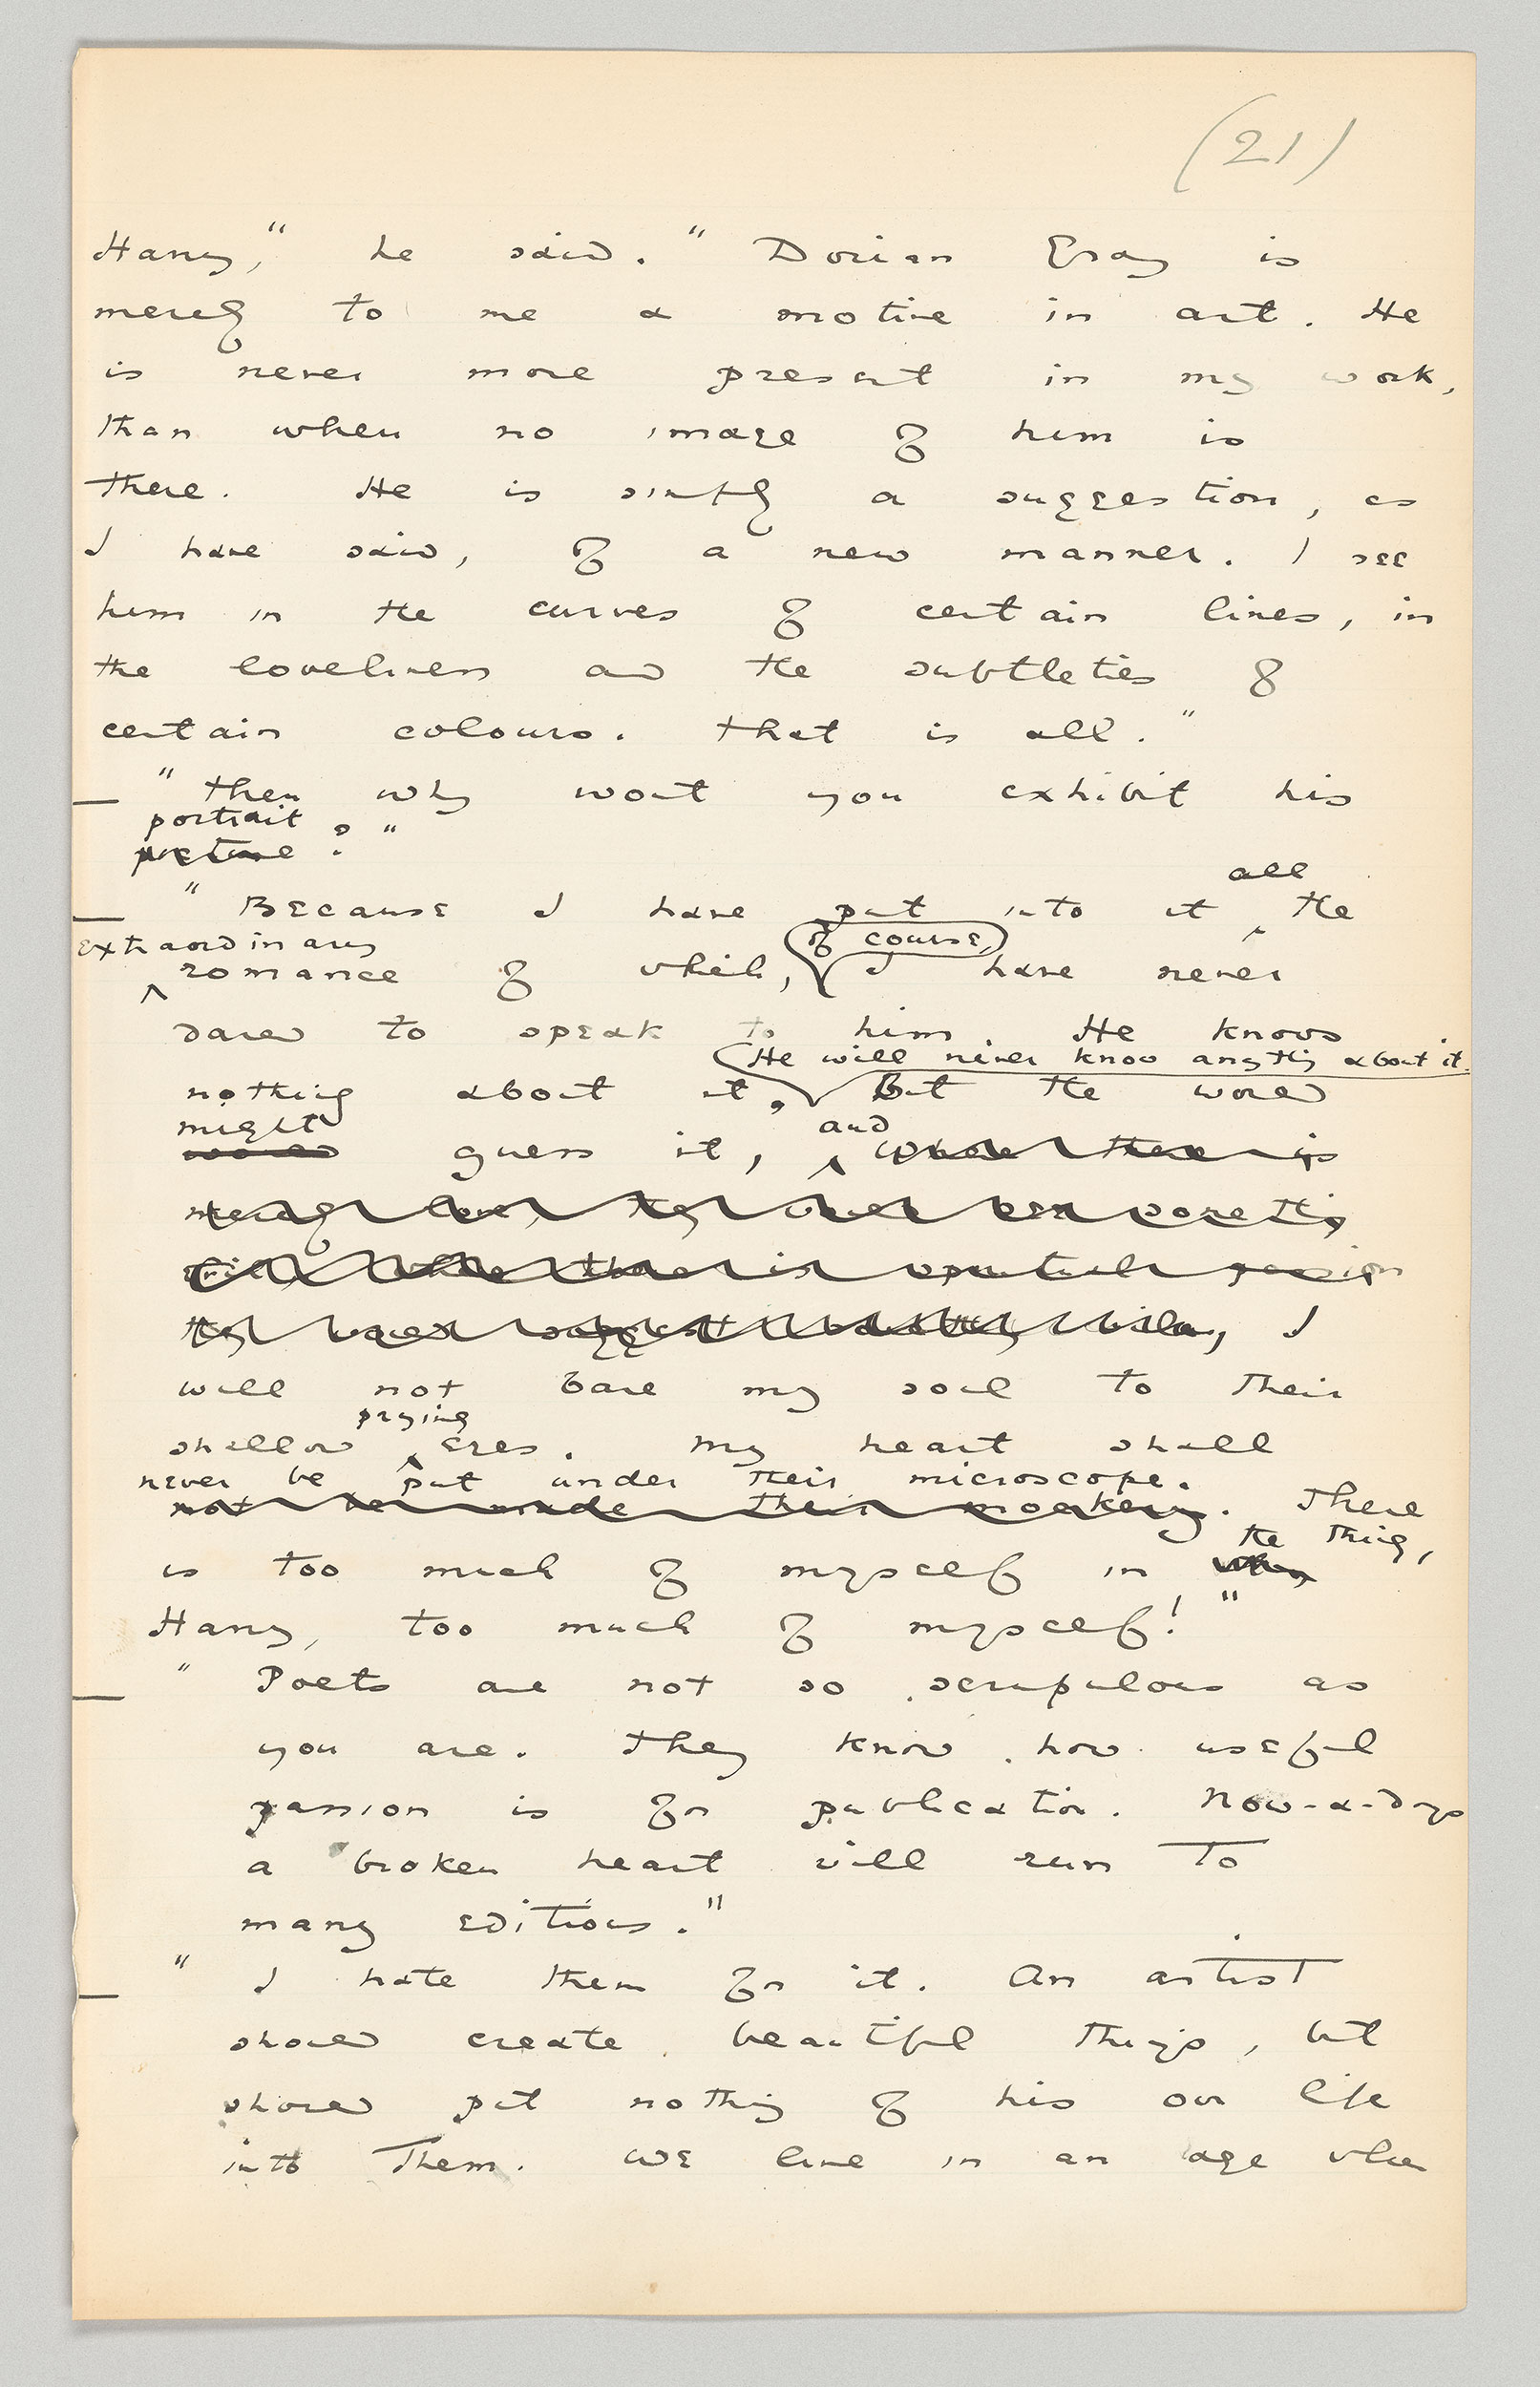 (21)
Harry," he said. "Dorian Gray is
merely to me a motive in art. He
is never more present in my work,
than when no image of him is
there. He is simply a suggestion, as
I have said, of a new manner. I see
him in the curves of certain lines, in
the loveliness and the subtleties of
certain colours. That is all."
"Then why wont you exhibit his
portrait
picture?"
all
"Because I have put into it the
extraordinary
of course,
romance of which, I have never
dared to speak to him. He knows
He will never know anything about it.
nothing about it. But the world
might
and
would guess it, where there is
merely love, they would see something
evil, where there is spiritual passion
they would suggest something vile, I
will not bare my soul to their
prying
shallow eyes. My heart shall
never be put under their microscope.
not be made their mockery. There
the thing,
is too much of myself in
Harry, too much of myself!"
"Poets are not so scrupulous as
you are. They know how useful
passion is for publication. Now-a-days
a broken heart will run to
many editions."
"I hate them for it. An artist
should create beautiful things, but
should put nothing of his own life
into them. We live in an age when